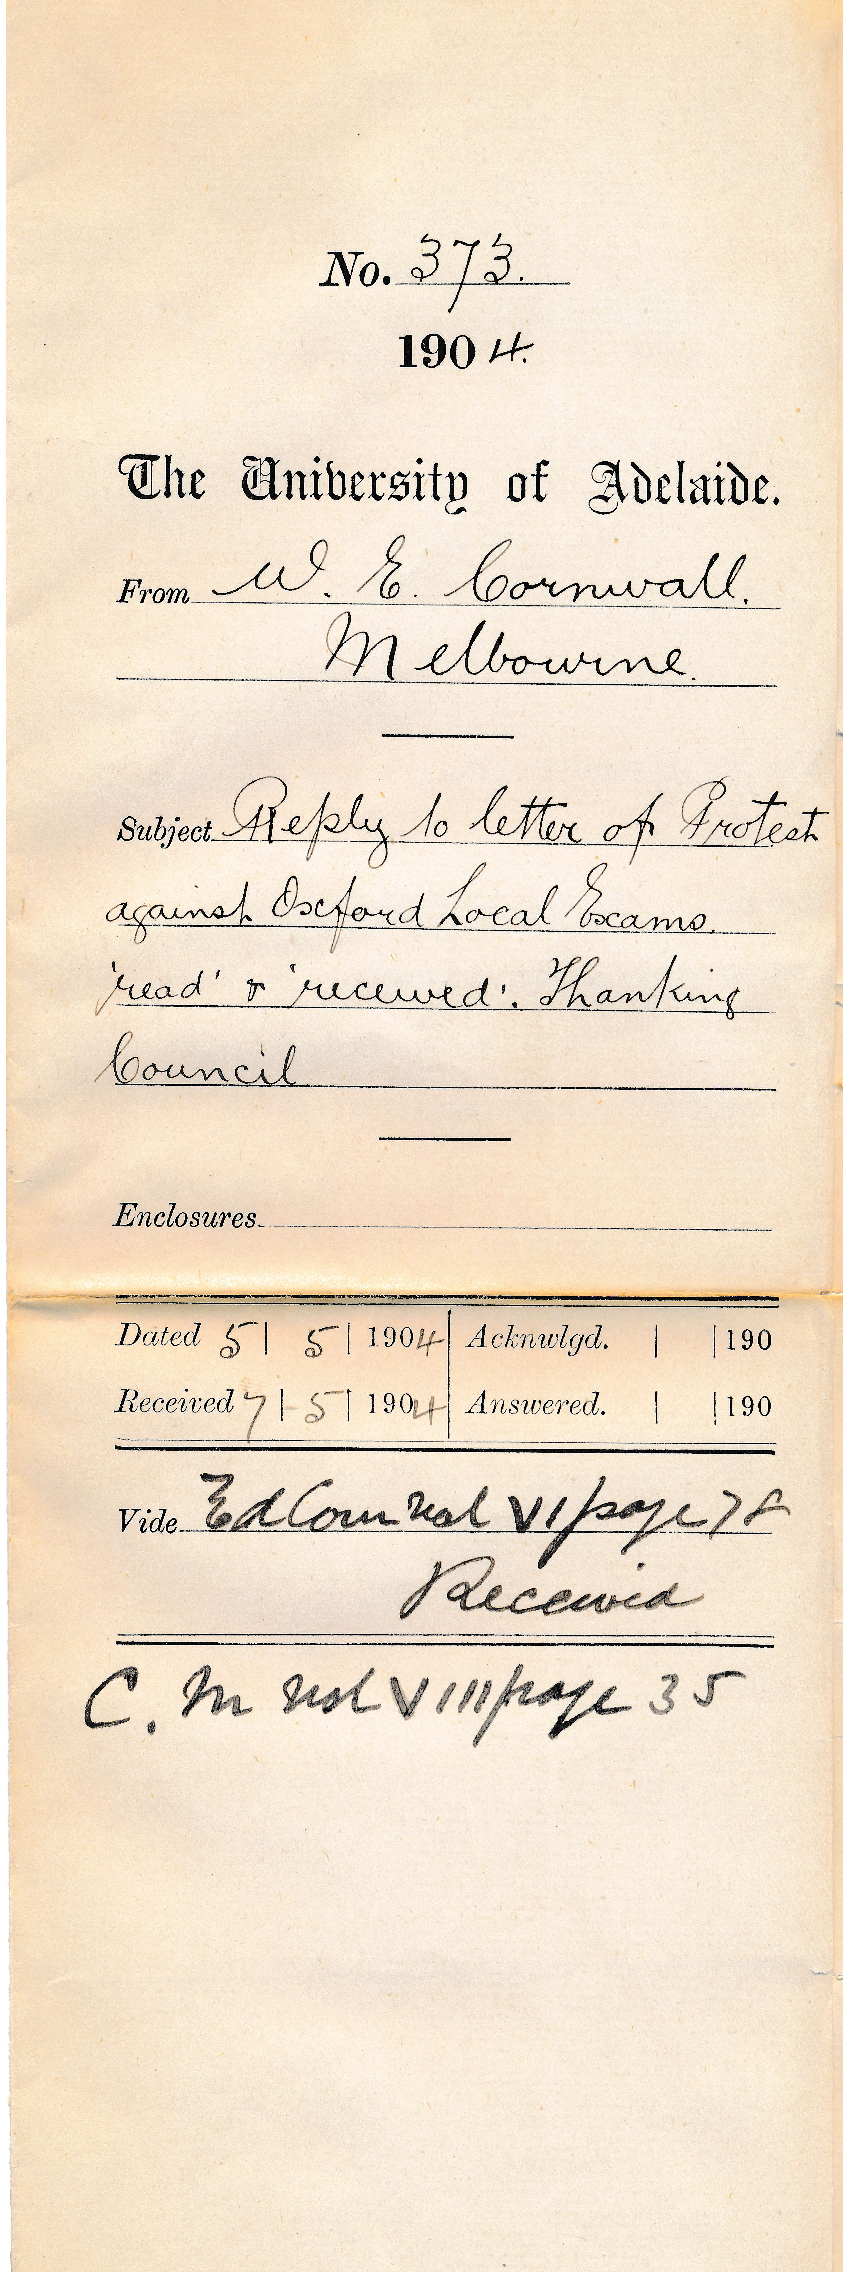 No. 373.
1904.
The University of Adelaide.
From W. E. Cornwall.
Melbourne.
Subject Reply to letter of Protest
against Oxford Local Exams.
'read' & 'received'. Thanking
Council
Enclosures
Dated 5 | 5 | 1904 Acknwlgd. | | 190
Received 7 | 5 | 1904 Answered. | | 190
Vide Ed Com Vol VI page 78
Received
C. M Vol VIII page 35